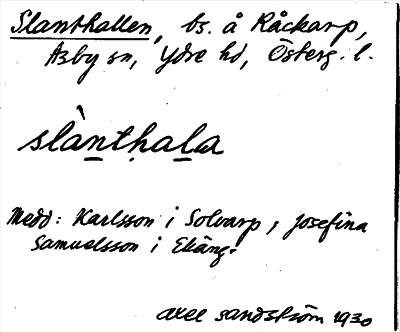 Slanthallen, bs. å Råckarp,
Asby sn, Ydre hd, Österg. l.
slàntḥala
Medd: Karlsson i Solvarp, Josefina
Samuelsson i Ekäng.
Axel Sandström 1930